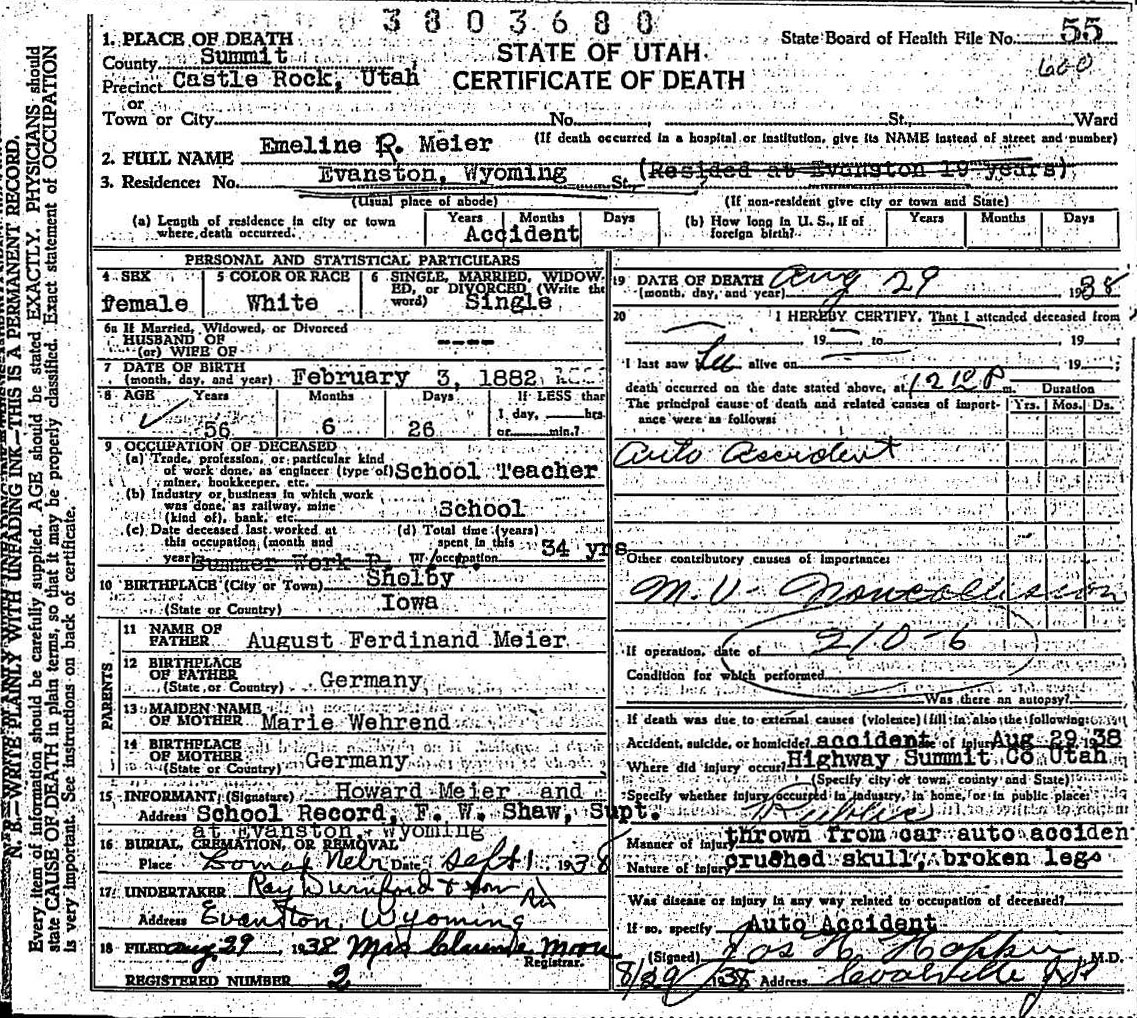 3803680
1. PLACE OF DEATH
STATE OF UTAH
CERTIFICATE OF DEATH
State Board of Health File No. 55
600
County Summit
Precinct Castle Rock, Utah
or
Town or City No. St. Ward
(If death occurred in a hospital or institution, give its NAME instead of street and number)
2. FULL NAME Emeline R. Meier
3. Residence: No. Evanston, Wyoming St., (Resided at Evanston 19 years)
(Usual place of abode) (If non-resident give city or town and State)
(a) Length of residence in city or town where death occurred. Years Months Days
Accident
(b) How long in U. S., if of foreign birth? Years Months Days
PERSONAL AND STATISTICAL PARTICULARS
4 SEX female
5 COLOR OR RACE White
6 SINGLE, MARRIED, WIDOWED, OR DIVORCED (Write the word) Single
6a If Married, Widowed, or Divorced
HUSBAND OF
(or) WIFE OF ----
7 DATE OF BIRTH
(month, day, and year) February 3, 1882
8 AGE Years 56 Months 6 Days 26
If LESS than
1 day, hrs.
or min.?
9 OCCUPATION OF DECEASED
(a) Trade, profession, or particular kind
of work done, as engineer (type of)
miner, bookkeeper, etc. School Teacher
(b) Industry or business in which work
was done, as railway, mine
(kind of), bank, etc. School
(c) Date deceased last worked at
this occupation (month and
year)
(d) Total time (years)
spent in this
occupation 34 yrs
10 BIRTHPLACE (City or Town) Shelby
(State or Country) Iowa
PARENTS
11 NAME OF
FATHER August Ferdinand Meier
12 BIRTHPLACE
OF FATHER
(State or Country) Germany
13 MAIDEN NAME
OF MOTHER Marie Wehrend
14 BIRTHPLACE
OF MOTHER
(State or Country) Germany
15 INFORMANT (Signature) Howard Meier and
Address School Record, F. W. Shaw, Supt.
at Evanston, Wyoming
16 BURIAL, CREMATION, OR REMOVAL
Place Nebr Date Sept 1 1938
17 UNDERTAKER Ray Durnford & Son
Address Evanston, Wyoming
18 FILED Aug 29 1938 Mrs Clarence Moore
Registrar.
REGISTERED NUMBER 2
19 DATE OF DEATH
(month, day, and year) Aug 29 1938
20 I HEREBY CERTIFY, That I attended deceased from
, 19 to , 19
I last saw alive on , 19 ;
death occurred on the date stated above, at 12 10 P m. Duration
The principal cause of death and related causes of importance were as follows: Yrs. Mos. Ds.
Auto Accident
Other contributory causes of importance:
M.V. Noncollision
210-6
If operation, date of
Condition for which performed
Was there an autopsy?
If death was due to external causes (violence) fill in also the following:
Accident, suicide, or homicide? accident Date of injury Aug 29 1938
Where did injury occur? Highway Summit Co Utah
(Specify city or town, county and State)
Specify whether injury occurred in industry, in home, or in public place:
Public
Manner of injury thrown from car auto acciden
Nature of injury crushed skull, broken legs
Was disease or injury in any way related to occupation of deceased?
If so, specify Auto Accident
(Signed) Jos N Hopkin M.D.
8/29 1938 Address Coalville
N. B.—WRITE PLAINLY WITH UNFADING INK—THIS IS A PERMANENT RECORD.
Every item of information should be carefully supplied. AGE should be stated EXACTLY. PHYSICIANS should
state CAUSE OF DEATH in plain terms, so that it may be properly classified. Exact statement of OCCUPATION
is very important. See instructions on back of certificate.